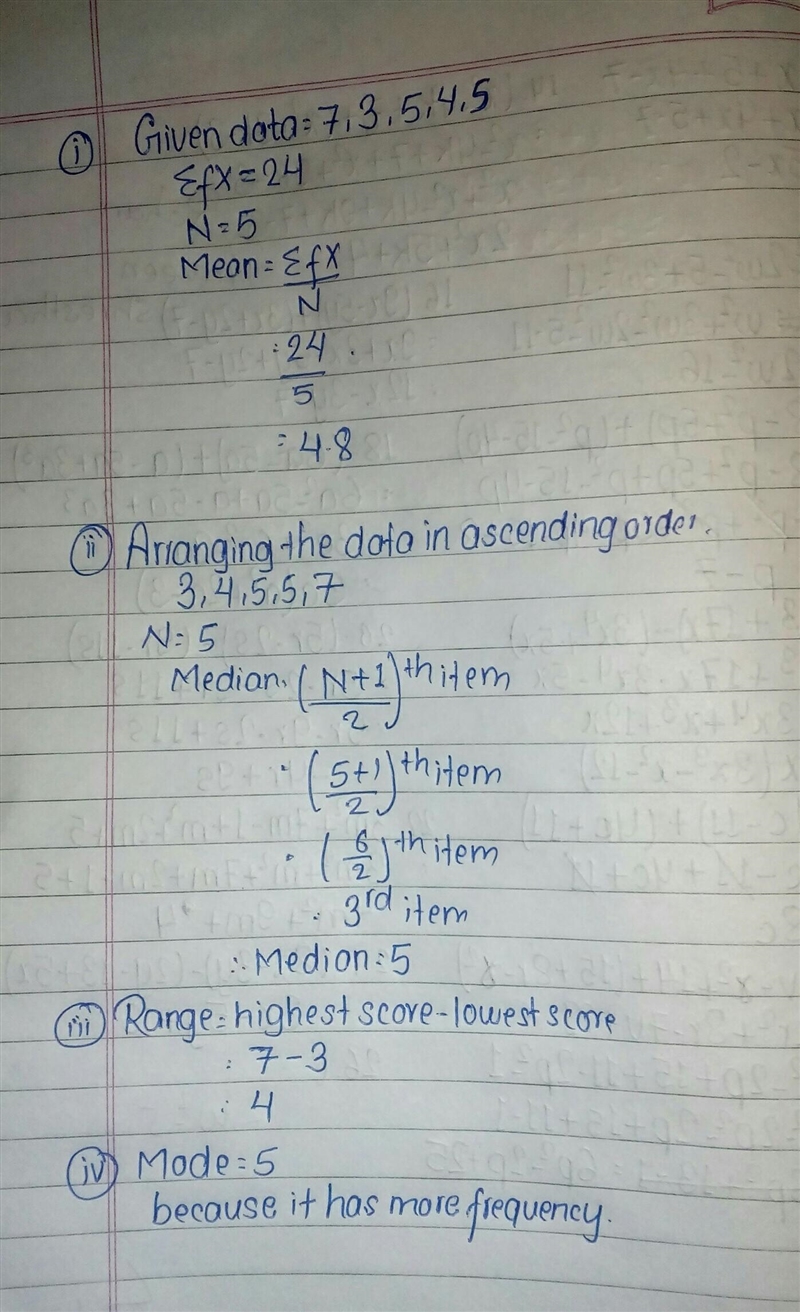 (i) Given data = 7, 3, 5, 4, 5
Σfx = 24
N = 5
Mean = Σfx
N
= 24
5
= 4.8
(ii) Arranging the data in ascending order.
3, 4, 5, 5, 7
N = 5
Median = (N+1/2)th item
= (5+1/2)th item
= (6/2)th item
= 3rd item
∴ Median = 5
(iii) Range = highest score - lowest score
= 7 - 3
= 4
(iv) Mode = 5
because it has more frequency.